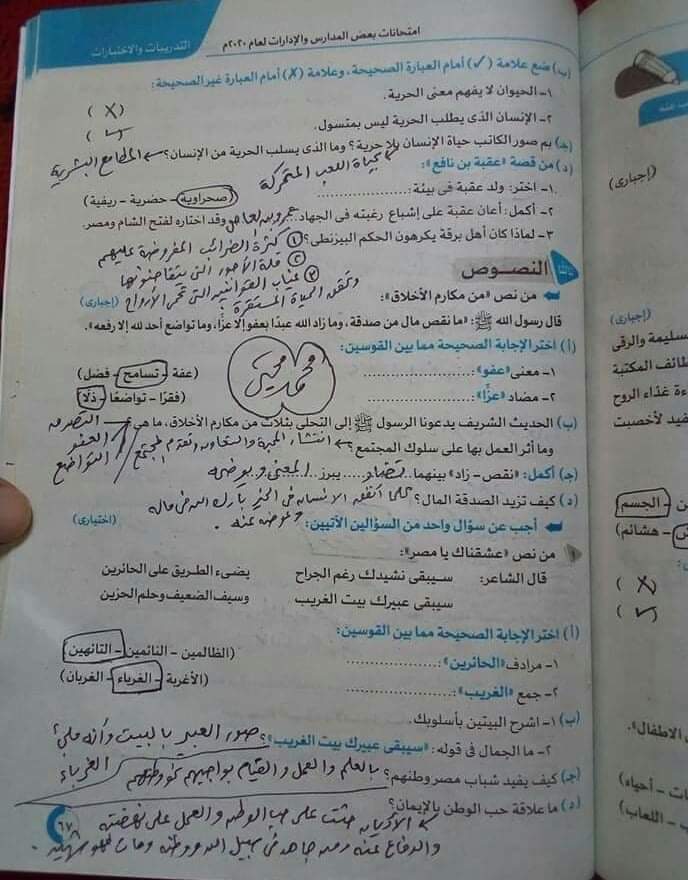 امتحانات بعض المدارس والإدارات لعام ٢٠٢٠م
التدريبات والاختبارات
(ب) ضع علامة (✓) أمام العبارة الصحيحة، وعلامة (✗) أمام العبارة غير الصحيحة:
١- الحيوان لا يفهم معنى الحرية. (✗)
٢- الإنسان الذى يطلب الحرية ليس بمتسول. (✓)
(جـ) بم صور الكاتب حياة الإنسان بلا حرية؟ وما الذى يسلب الحرية من الإنسان؟ ← المطامع البشرية
بحياة اللعب المتحركة
(د) من قصة «عقبة بن نافع»:
١- اختر: ولد عقبة فى بيئة: (صحراوية - حضرية - ريفية)
٢- أكمل: أعان عقبة على إشباع رغبته فى الجهاد عمرو بن العاص وقد اختاره لفتح الشام ومصر.
٣- لماذا كان أهل برقة يكرهون الحكم البيزنطى؟ ① كثرة الضرائب المفروضة عليهم
② قلة الأجور التى يتقاضونها
③ غياب القوانين التى تحمى الأرواح
وتكفل الحياة المستقرة
النصوص
من نص «من مكارم الأخلاق»: (إجبارى)
قال رسول الله ﷺ: «ما نقص مال من صدقة، وما زاد الله عبدًا بعفو إلا عزًّا، وما تواضع أحد لله إلا رفعه».
(أ) اختر الإجابة الصحيحة مما بين القوسين:
١- معنى «عفو»: (عفة - تسامح - فضل)
٢- مضاد «عزًّا»: (فقرًا - تواضعًا - ذلًّا)
محمد
(ب) الحديث الشريف يدعونا الرسول ﷺ إلى التحلى بثلاث من مكارم الأخلاق، ما هى؟ التصدق
العفو
التواضع
وما أثر العمل بها على سلوك المجتمع؟ ← انتشار المحبة والتعاون
(جـ) أكمل: «نقص - زاد» بينهما تضاد يبرز المعنى ويوضحه
(د) كيف تزيد الصدقة المال؟ كلما أنفق الإنسان فى الخير بارك الله فى ماله
وعوضه عنه.
أجب عن سؤال واحد من السؤالين الآتيين: (اختيارى)
من نص «عشقناك يا مصر»:
قال الشاعر: سيبقى نشيدك رغم الجراح يضىء الطريق على الحائرين
سيبقى عبيرك بيت الغريب وسيف الضعيف وحلم الحزين
(أ) اختر الإجابة الصحيحة مما بين القوسين:
١- مرادف «الحائرين»: (الظالمين - النائمين - التائهين)
٢- جمع «الغريب»: (الأغربة - الغرباء - الغربان)
(ب) ١- اشرح البيتين بأسلوبك.
٢- ما الجمال فى قوله: «سيبقى عبيرك بيت الغريب»؟ صور العبير بالبيت وأنه
الغرباء
(جـ) كيف يفيد شباب مصر وطنهم؟ بالعلم والعمل والقيام بواجبهم نحو وطنهم
(د) ما علاقة حب الوطن بالإيمان؟
← الأديان حثت على حب الوطن والعمل على نهضته
والدفاع عنه ومن جاهد فى سبيل الله ووطنه ومات فهو شهيد.
٦٧
(إجبارى)
(إجبارى)
- الجسم
- هشائم)
(✗)
(✓)